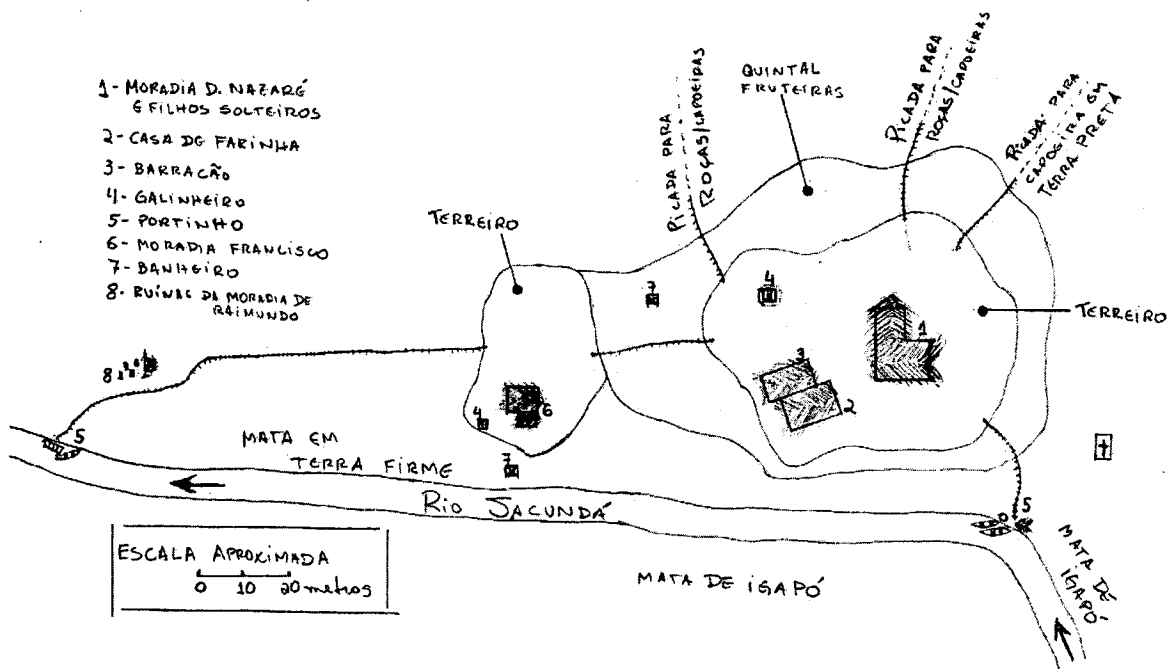 1- MORADIA D. NAZARÉ
E FILHOS SOLTEIROS
2- CASA DE FARINHA
3- BARRACÃO
4- GALINHEIRO
5- PORTINHO
6- MORADIA FRANCISCO
7- BANHEIRO
8- RUÍNAS DA MORADIA DE
RAIMUNDO
TERREIRO
PICADA PARA
ROÇAS/CAPOEIRAS
QUINTAL
FRUTEIRAS
PICADA PARA
ROÇAS/CAPOEIRAS
PICADA PARA
CAPOEIRA EM
TERRA PRETA
TERREIRO
7
4
1
3
2
8
4
6
7
5
5
MATA EM
TERRA FIRME
RIO JACUNDÁ
MATA DE IGAPÓ
MATA DE
IGAPÓ
ESCALA APROXIMADA
0 10 20 metros